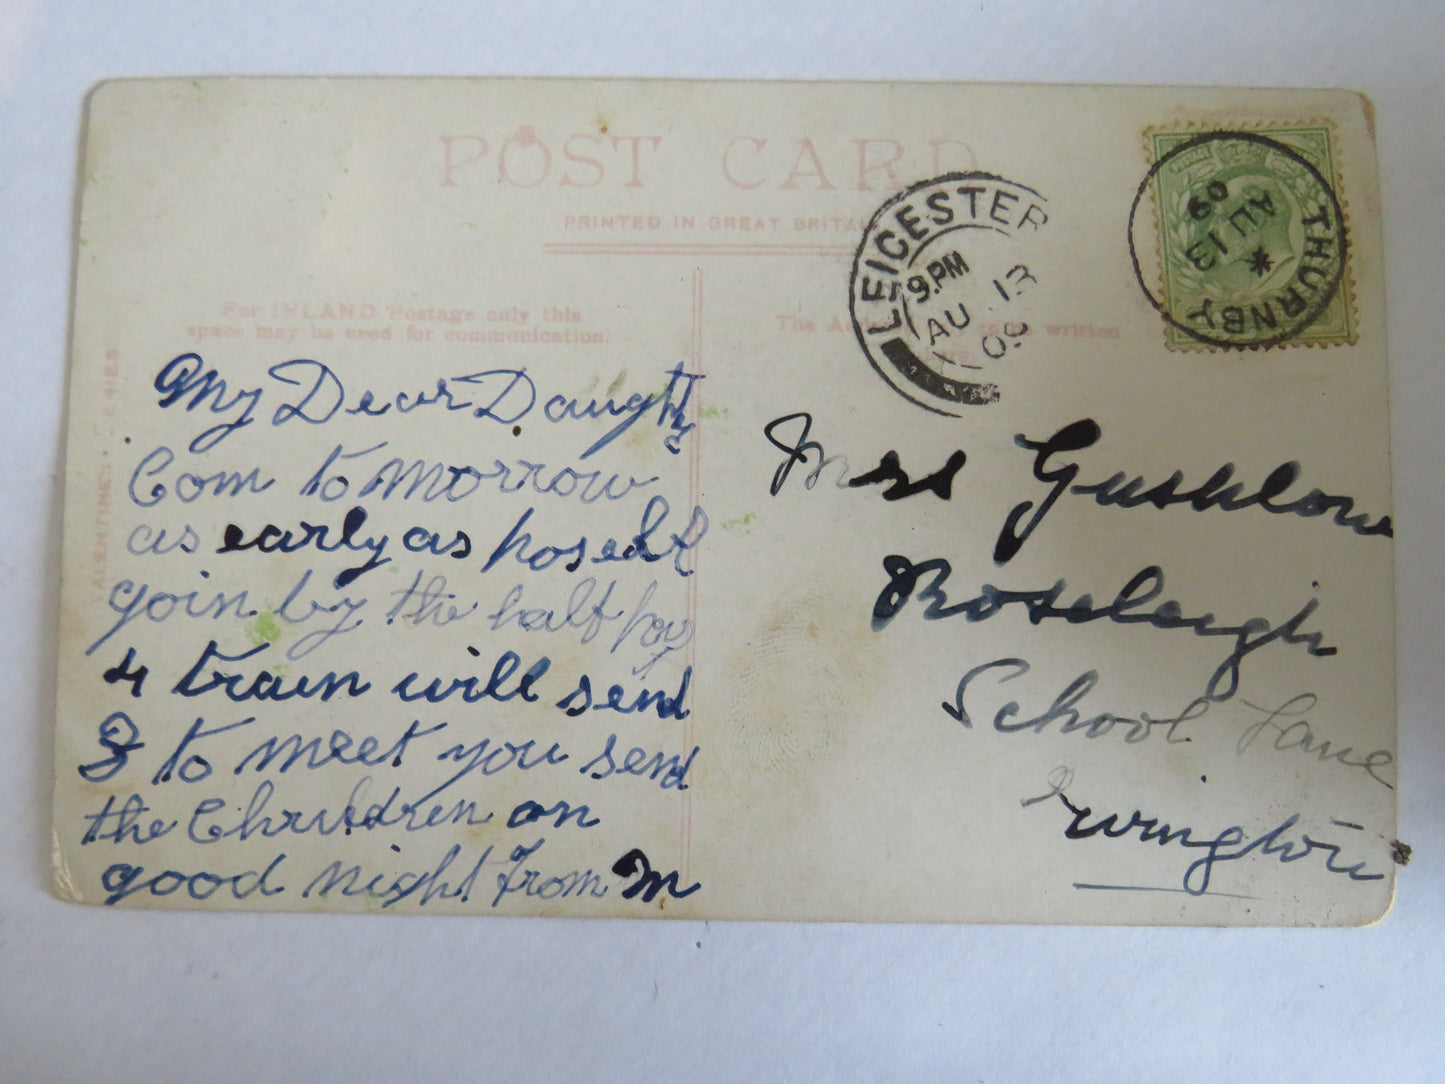 POST CARD
PRINTED IN GREAT BRITAIN
For INLAND Postage only this
space may be used for communication.
The Address to be written
VALENTINES SERIES
LEICESTER
9. PM
AU 13
09
THURNBY
AU 13
09
My Dear Daughtr
Com to morrow
as early as poseblt
goin by the half pas
4 train will send
to meet you send
the Children on
good night From M
Mrs Gushlow
Roseleigh
School Lane
Evington